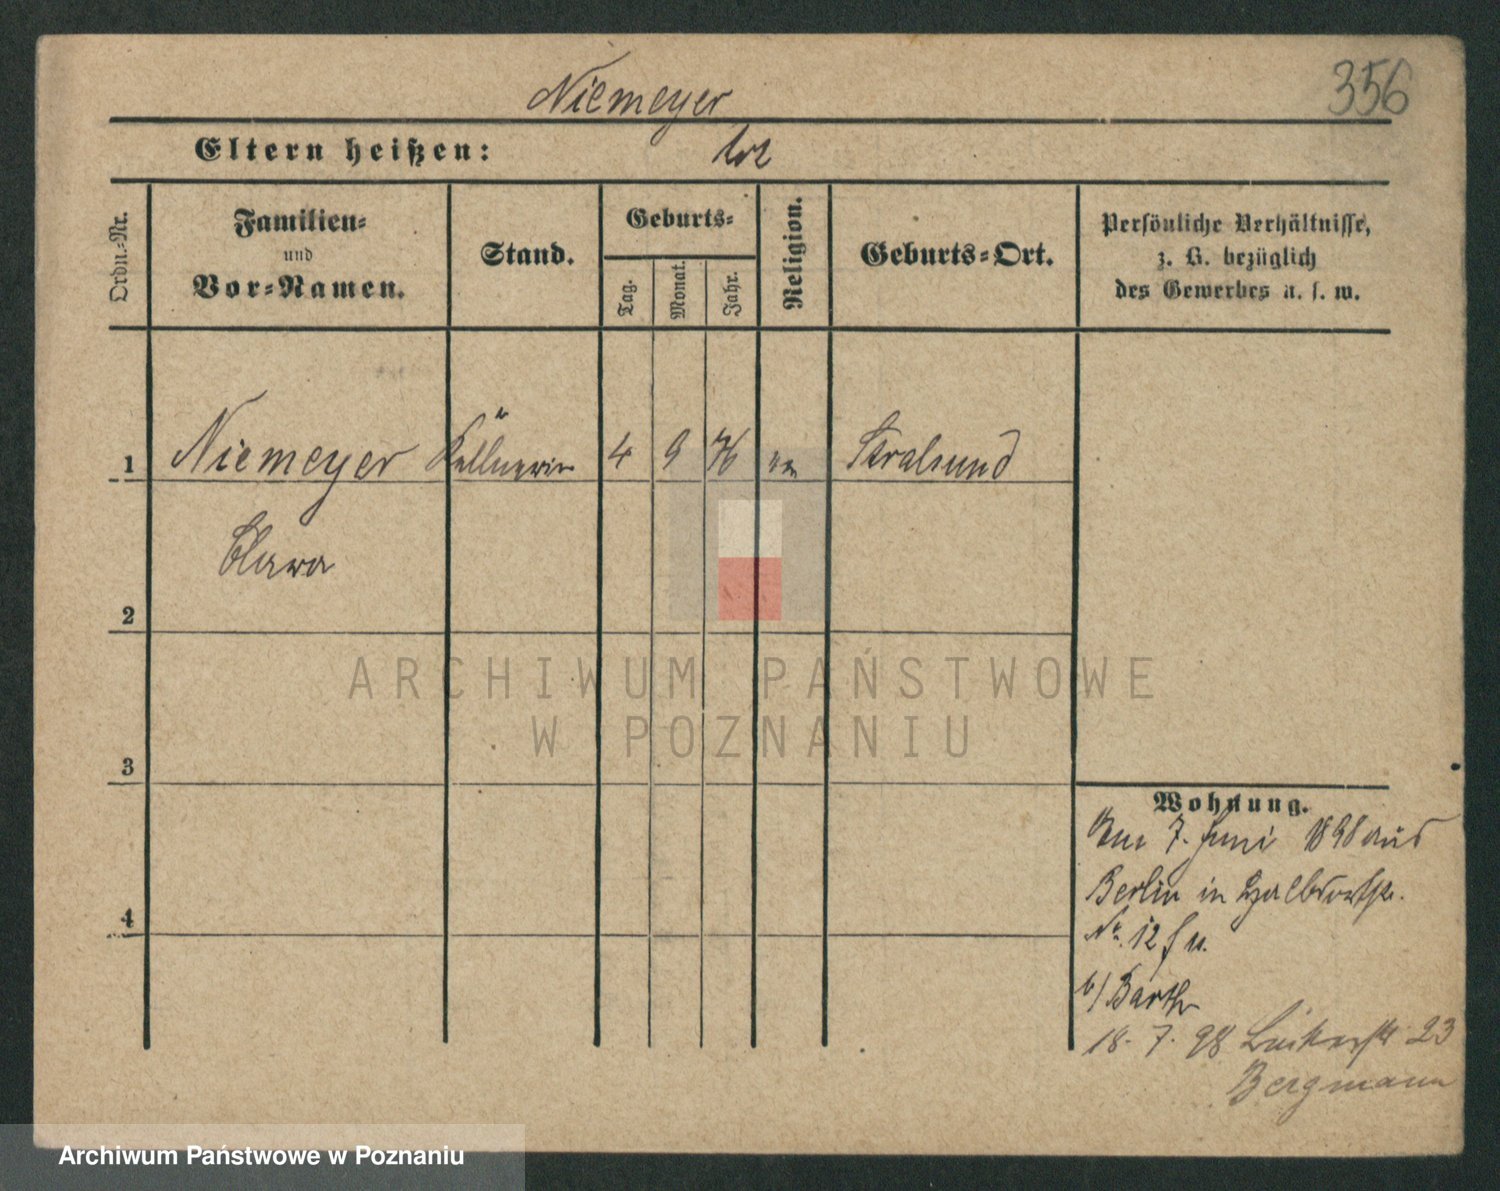 Niemeyer
356
Eltern heißen: tot
Ordn.-Nr.
Familien-
und
Vor-Namen.
Stand.
Geburts-
Tag.
Monat.
Jahr.
Religion.
Geburts-Ort.
Persönliche Verhältnisse,
z. B. bezüglich
des Gewerbes u. s. w.
1 Niemeyer Kellnerin 4 9 76 ev Stralsund
Clara
2
ARCHIWUM PAŃSTWOWE
W POZNANIU
3
Wohnung.
Am 7. Juni 1898 aus
Berlin in Halbdorfstr.
No. 12
4
b/ Barth
18. 7. 98 23
Bergmann
Archiwum Państwowe w Poznaniu